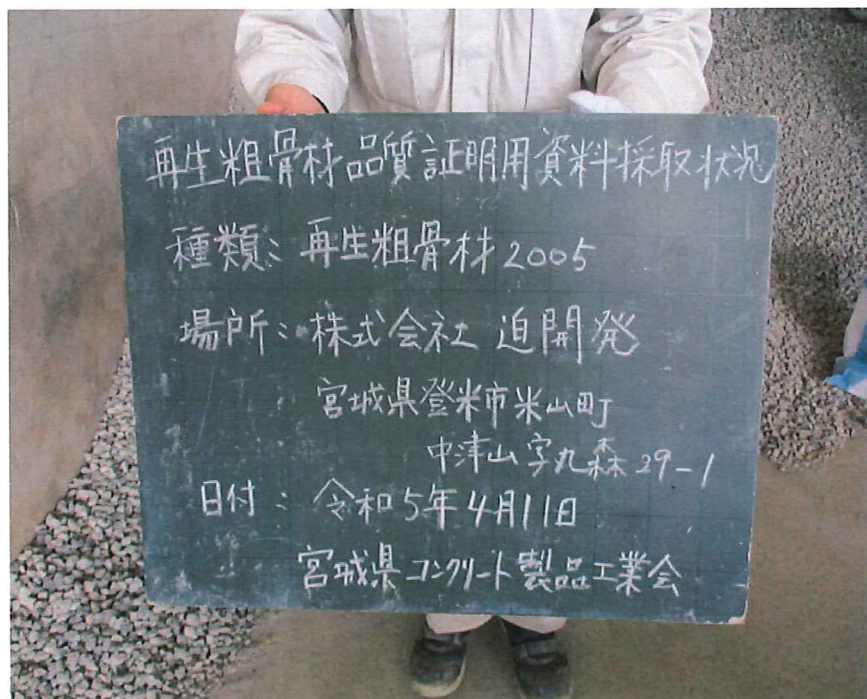 再生粗骨材品質証明用資料採取状況
種類: 再生粗骨材2005
場所: 株式会社 迫開発
宮城県登米市米山町
中津山字九森29-1
日付: 令和5年4月11日
宮城県コンクリート製品工業会